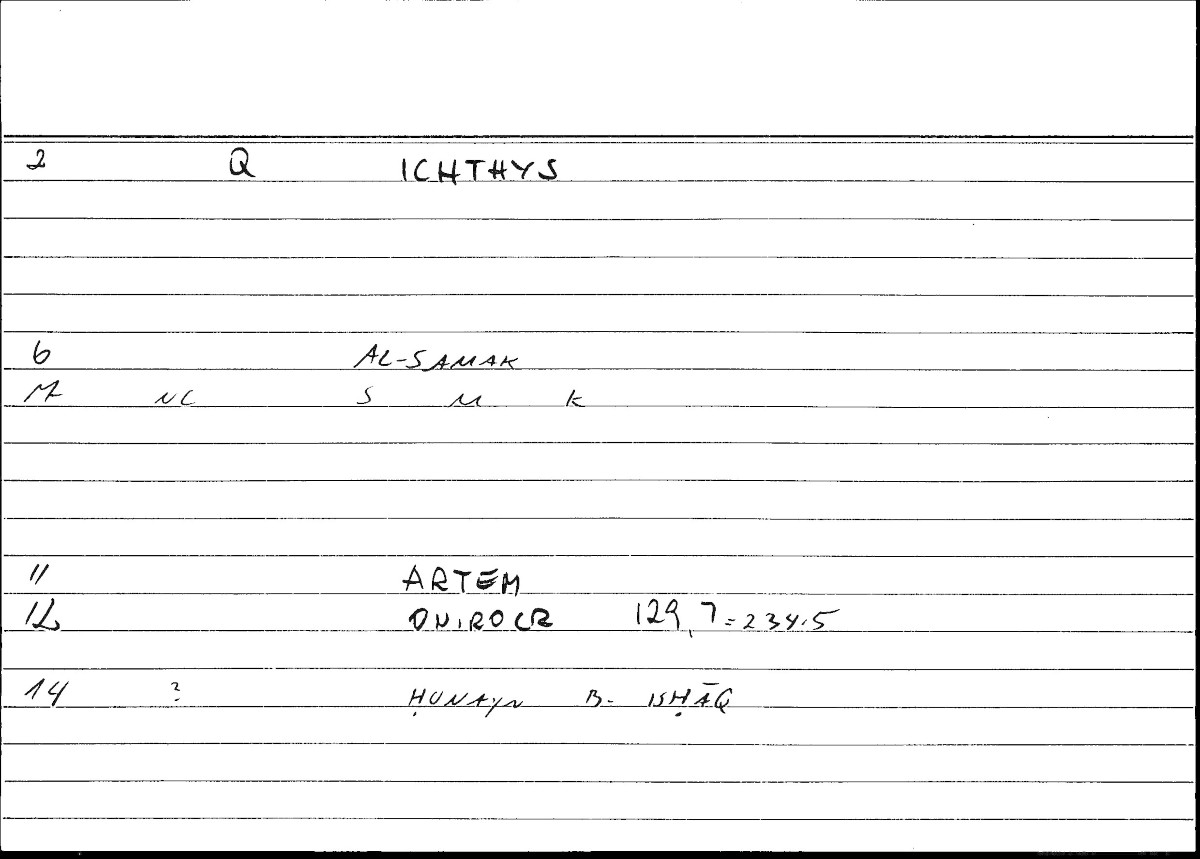 2 Q ICHTHYS
6 AL-SAMAK
NC S M K
11 ARTEM
12 ONIROCR 129,7=234.5
14 ? ḤUNAYN B. ISḤĀQ